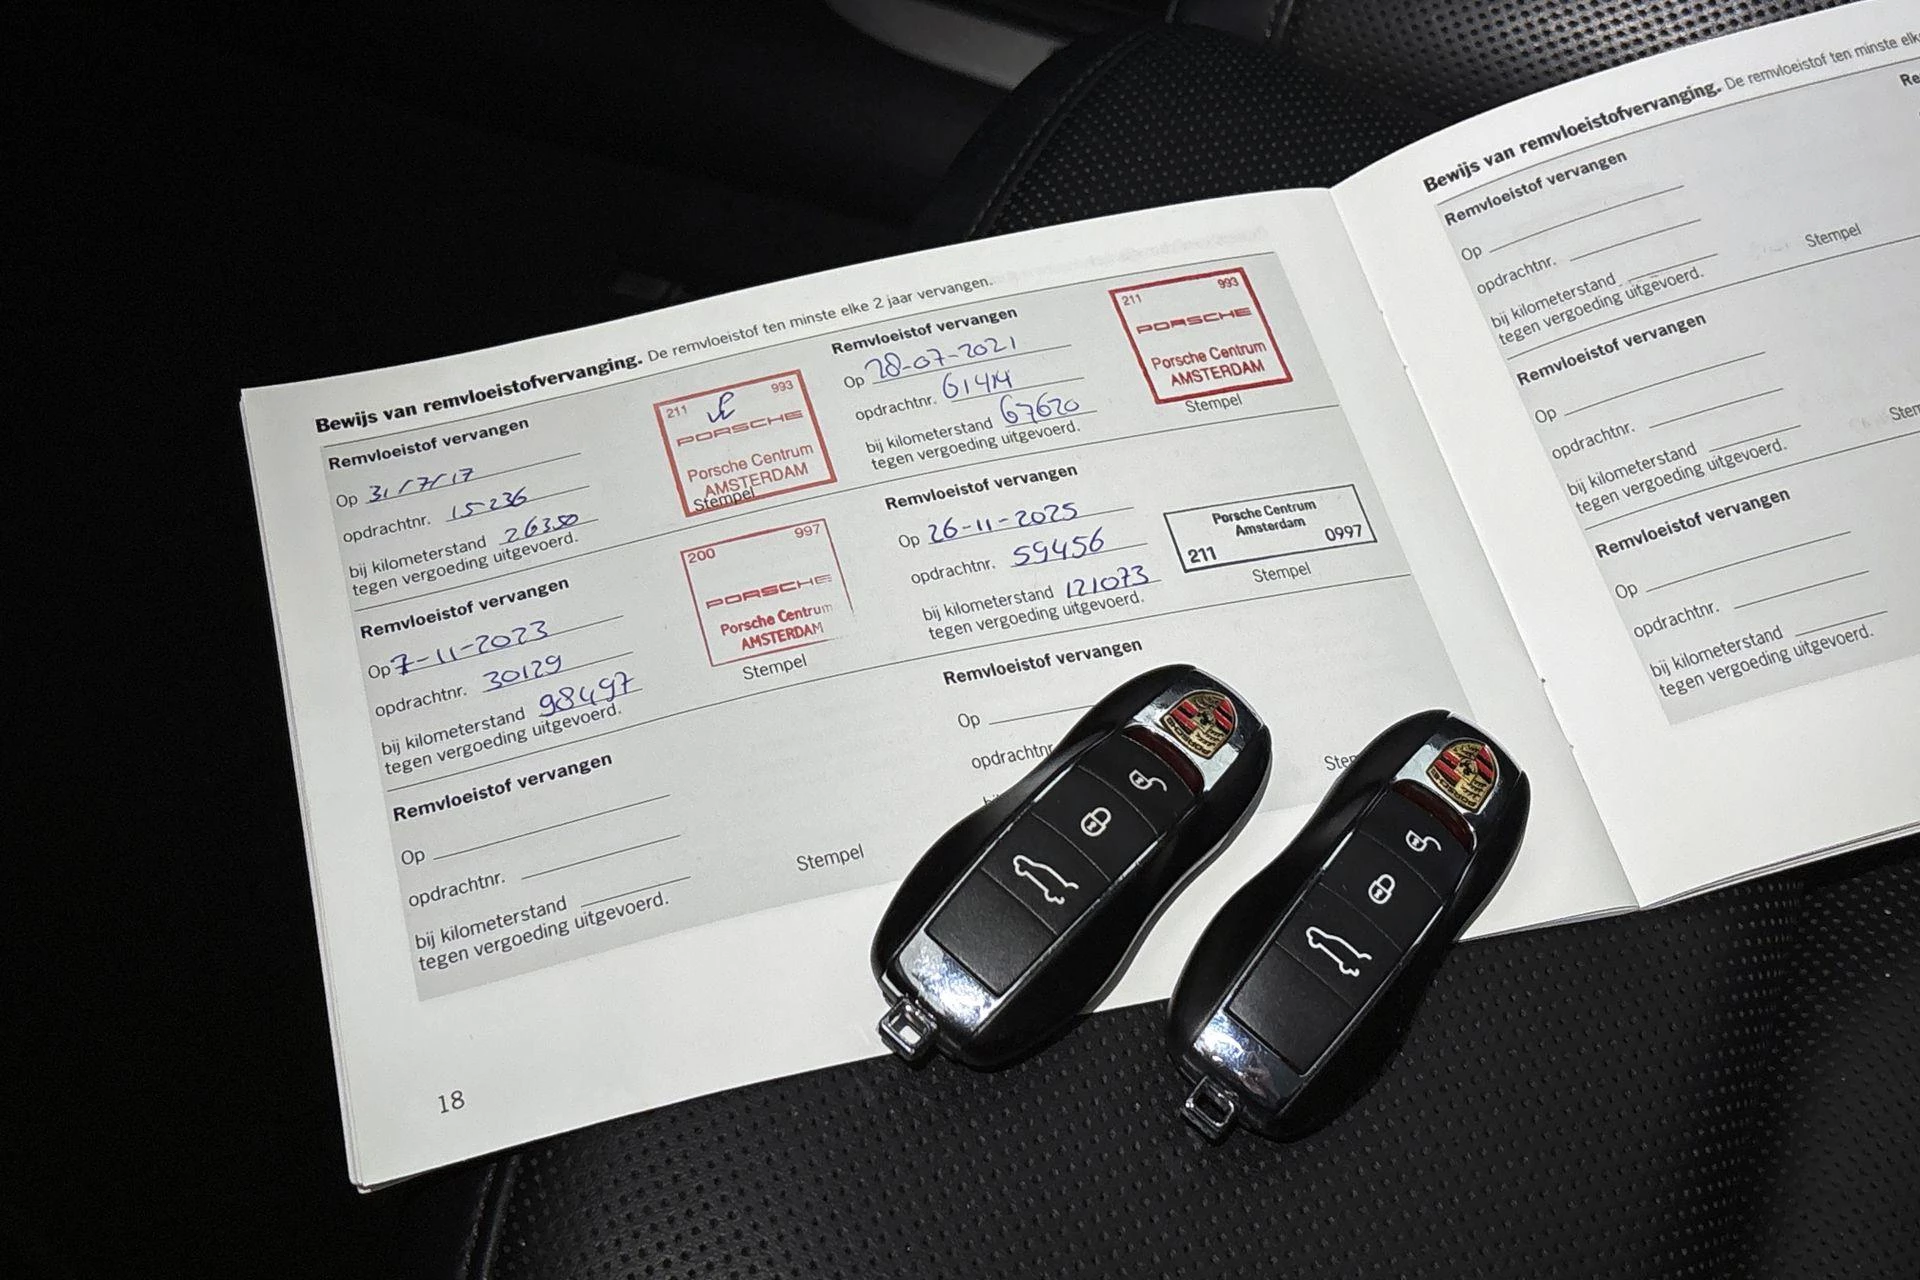 Bewijs van remvloeistofvervanging. De remvloeistof ten minste elke 2 jaar vervangen.
Remvloeistof vervangen
Op 31/7/17
opdrachtnr. 15236
bij kilometerstand 26350
tegen vergoeding uitgevoerd.
211 993
PORSCHE
Porsche Centrum
AMSTERDAM
Stempel
Remvloeistof vervangen
Op 28-07-2021
opdrachtnr.
bij kilometerstand 67620
tegen vergoeding uitgevoerd.
211 993
PORSCHE
Porsche Centrum
AMSTERDAM
Stempel
Remvloeistof vervangen
Op 7-11-2023
opdrachtnr. 30129
bij kilometerstand 98497
tegen vergoeding uitgevoerd.
200 997
PORSCHE
Porsche Centrum
AMSTERDAM
Stempel
Remvloeistof vervangen
Op 26-11-2025
opdrachtnr. 59456
bij kilometerstand 121073
tegen vergoeding uitgevoerd.
Porsche Centrum
Amsterdam
211 0997
Stempel
Remvloeistof vervangen
Op
opdrachtnr.
bij kilometerstand
tegen vergoeding uitgevoerd.
Stempel
Remvloeistof vervangen
Op
opdrachtnr
18
Bewijs van remvloeistofvervanging. De remvloeistof ten minste
Remvloeistof vervangen
Op
opdrachtnr.
bij kilometerstand
tegen vergoeding uitgevoerd.
Stempel
Remvloeistof vervangen
Op
opdrachtnr.
bij kilometerstand
tegen vergoeding uitgevoerd.
Remvloeistof vervangen
Op
opdrachtnr.
bij kilometerstand
tegen vergoeding uitgevoerd.